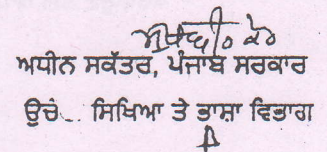 ਅਧੀਨ ਸਕੱਤਰ, ਪੰਜਾਬ ਸਰਕਾਰ
ਉਚੇ.. ਸਿਖਿਆ ਤੇ ਭਾਸ਼ਾ ਵਿਭਾਗ